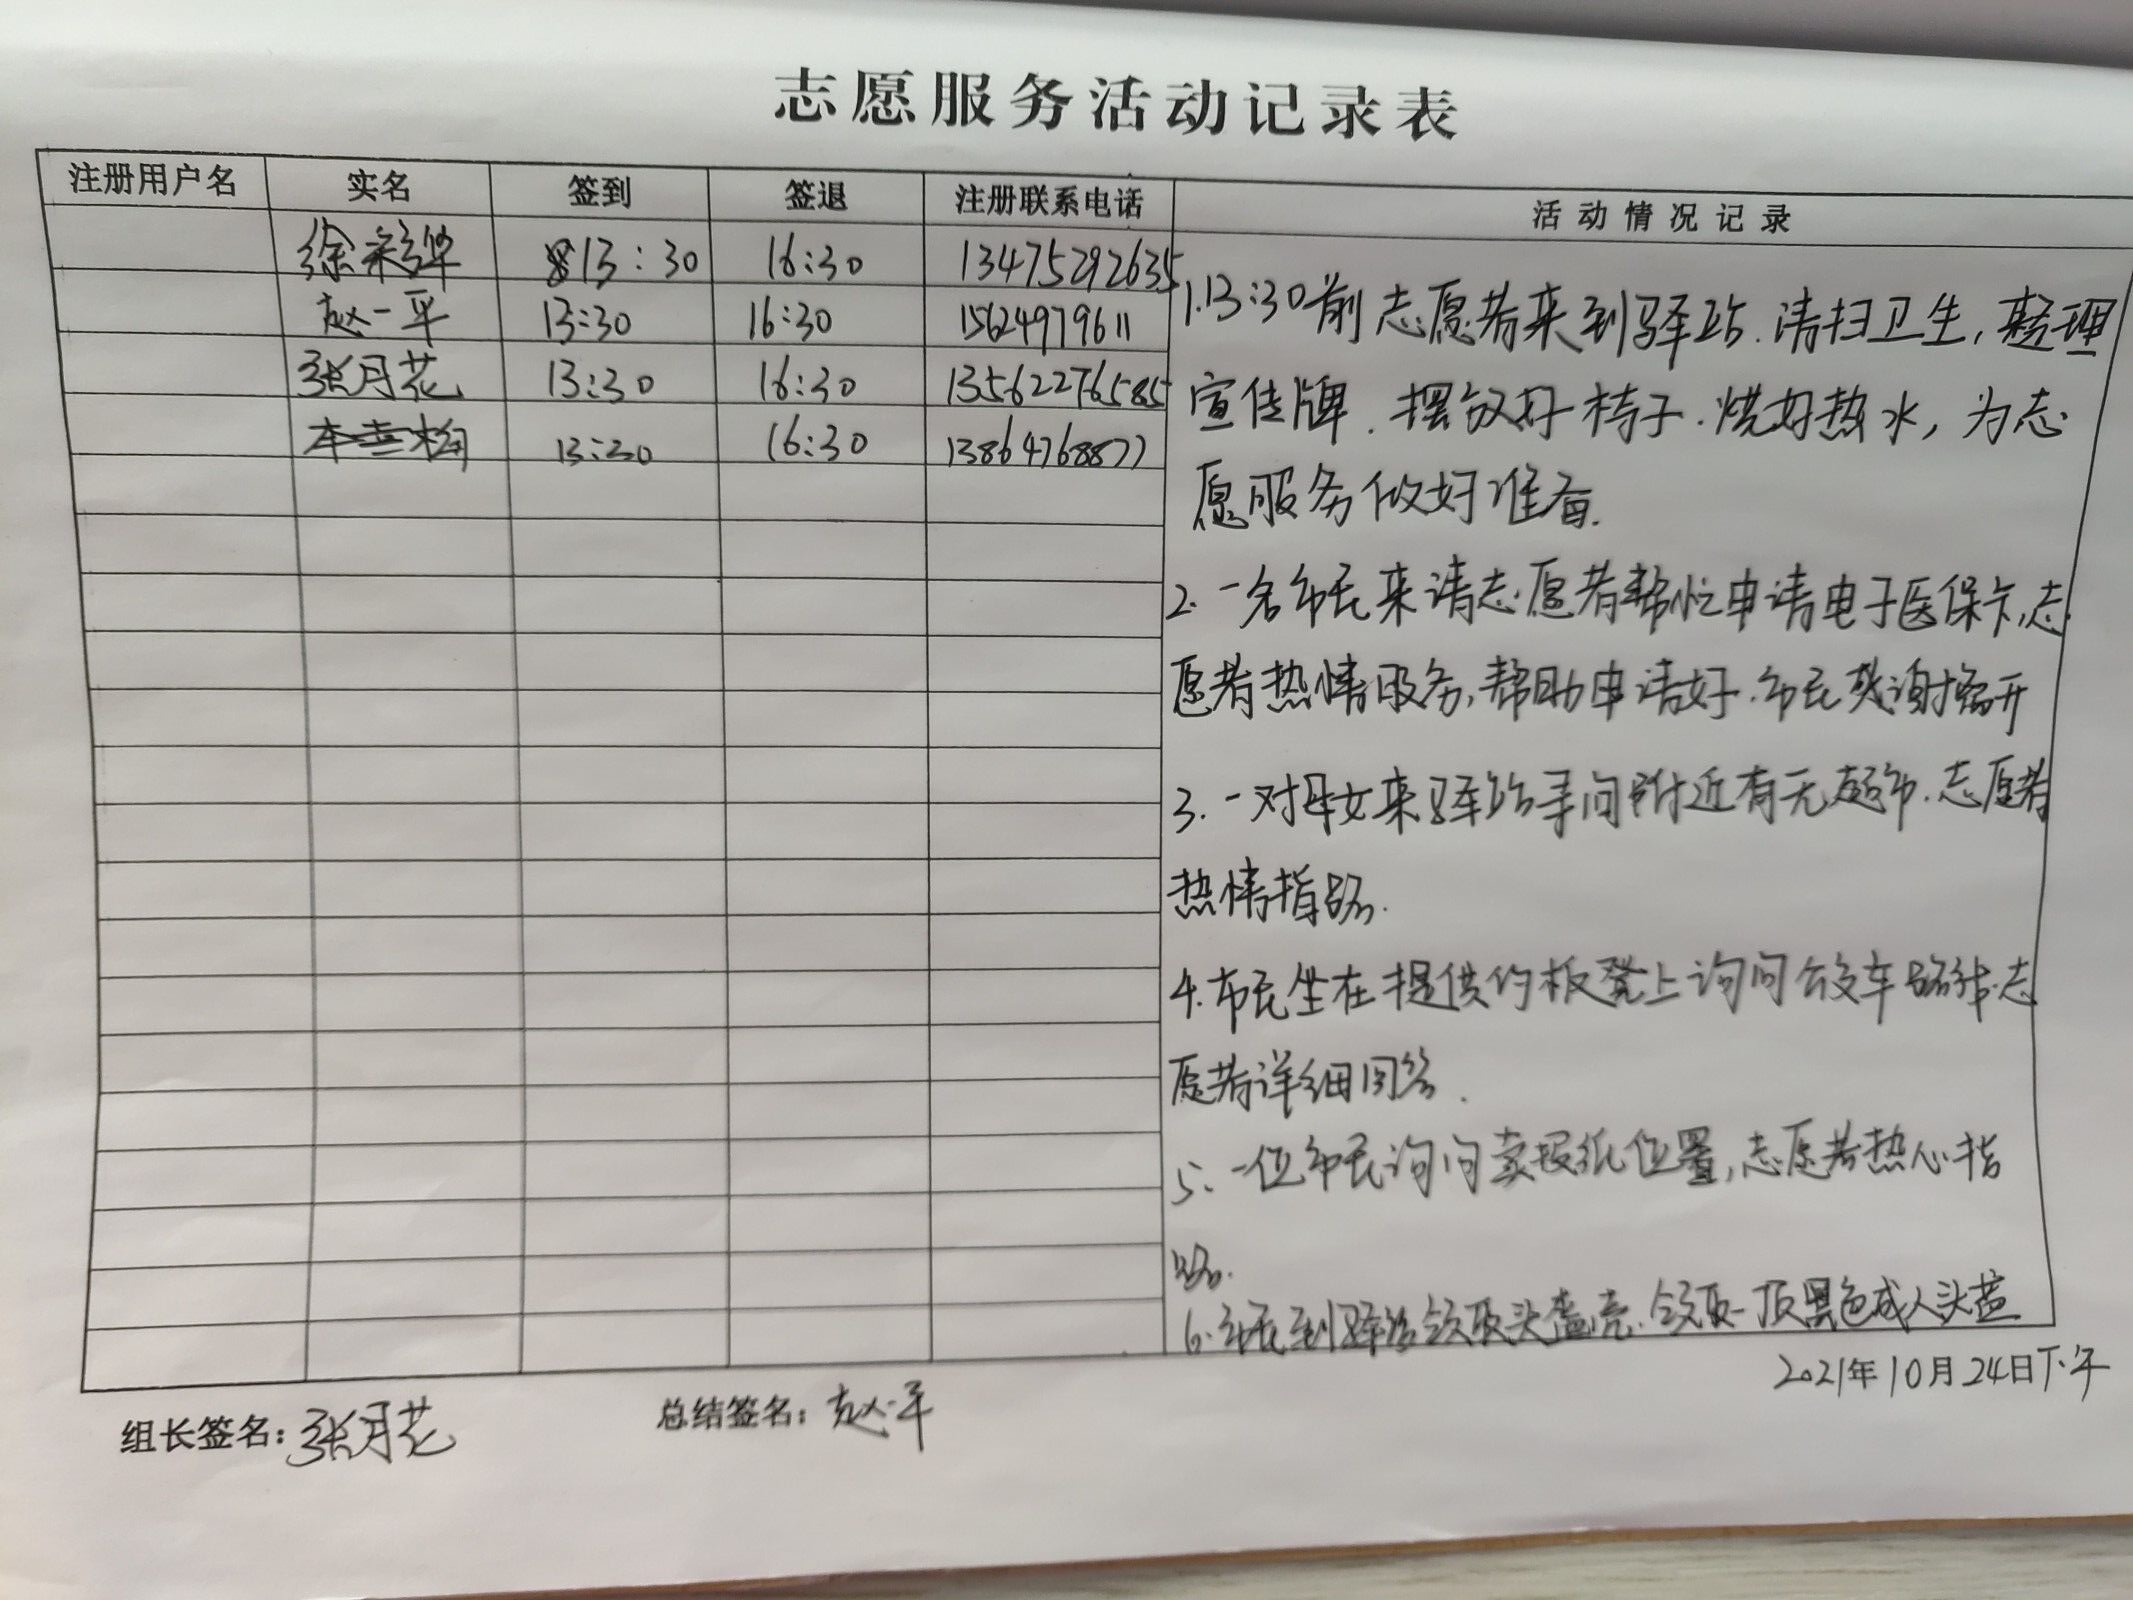 志愿服务活动记录表
注册用户名 实名 签到 签退 注册联系电话 活动情况记录
徐彩华 13:30 16:30 13475292635
赵一平 13:30 16:30 15624979611
张月花 13:30 16:30 13562276585
13:30 16:30 13864768877
1.13:30前志愿者来到驿站.清扫卫生,整理
宣传牌.摆放好椅子.烧好热水,为志
愿服务做好准备.
2.一名市民来请志愿者帮忙申请电子医保卡,志
愿者热情服务,帮助申请好.市民感谢离开
3.一对母女来驿站寻问附近有无超市.志愿者
热情指路.
4.市民坐在提供的板凳上询问公交车路线.志
愿者详细回答.
5.一位市民询问卖报纸位置,志愿者热心指
路.
6.市民到驿站领取头盔.领取一顶黑色成人头盔
2021年10月24日下午
组长签名:张月花 总结签名:赵一平